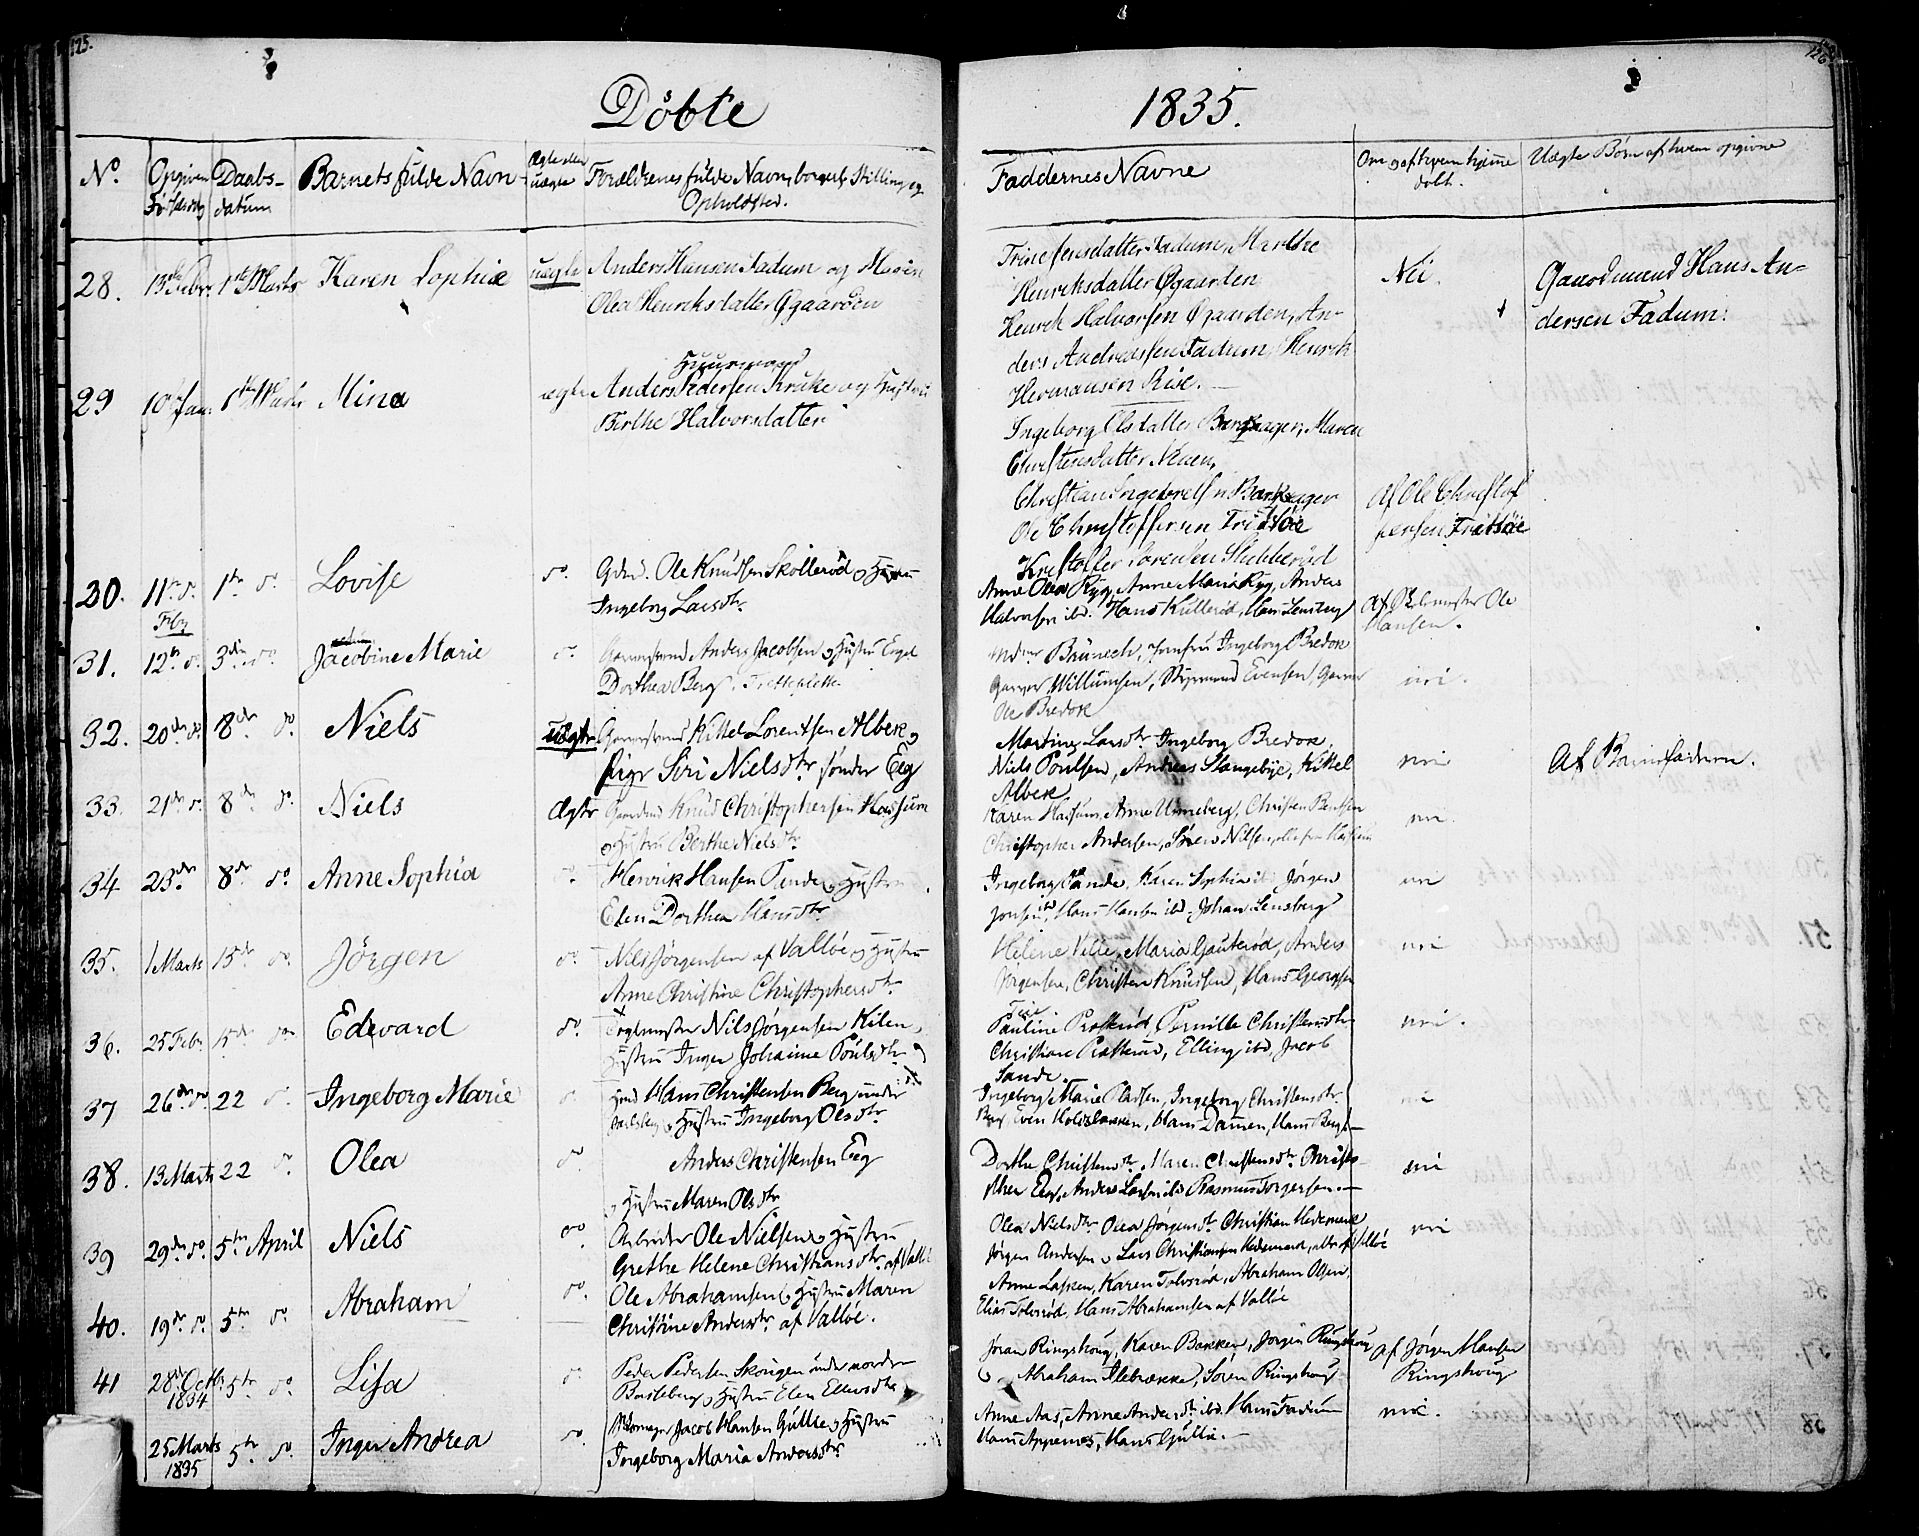 125.
126
Döbte
1835.
No.
Opgiven Födselsdag
Daabs-datum
Barnets fulde Navn
Ægte eller uægte
Forældrenes fulde Navn, borgerl. Stilling og Opholdsted.
Faddernes Navne
Om og af hvem hjemme döbt.
Uægte Börn af hvem opgivne
28. 13de Febr. 1ste Marts Karen Sophie uægte Anders Hansen Fadum og Maren
Olea Henriksdatter Øgaarden
Trine Jensdatter Fadum, Marthe
Henriksdatter Øgaarden
Henrik Halvorsen Øgaarden, An-
ders Andreassen Fadum, Henrik
Hermansen Rise.
Nei.
Gaardmand Hans An-
dersen Fadum.
29 10 Jan. 1ste Marts Mina ægte
Huusmand
Anders Pedersen Kruke og Hustru
Birthe Halvorsdatter
Ingeborg Olsdatter Barkager, Maren
Christensdatter
Christian Ingebretsen Barkager
Ole Christoffersen Tridsöe
Kristoffer Sörensen Stubberöd
Af Ole Christof
fersen Tritsöe
30. 11te do. 1ste do Lovise do. Gdmd. Ole Knudsen Skolleröd og Hustru
Febr
Ingeborg Larsdtr.
Anne Olea Ryg, Anne Maria Ryg, Anders
Halvorsen ibd. Hans Kulleröd, Hans Lensberg
Af Skolemester Ole
Hansen.
31. 12te do. 3die do Jacobine Marie do. Anders Jacobsen og Hustru Engel
Dorthea Berg.
Brünech, Jomfru Ingeborg Bredok
Garver Willumsen, Sigismund Evensen, Garver
Ole Bredok
nei.
32. 20de do. 8de do Niels uægte Kittel Lorentsen Albek og
Pige Siri Nielsdtr söndre Eeg
Martine Larsdtr. Ingeborg Bredok,
Niels Poulsen, Andreas Slangebye, Kittel
Albek
nei
Af Barnefaderen.
33. 21de do. 8de do. Niels Ægte Gaardmd Knud Christophersen Hassum
og Hustru Berthe Nielsdtr.
Karen Hassum, Anne Unneberg, Christen Bentsen
Christopher Andersen, Sören Nilsen, alle fra Hassum
nei.
34 23de 8de do. Anne Sophia do. Henrik Hansen Sande og Hustru
Elen Dorthea Hansdtr
Ingeborg Sande, Karen Sophia ibd. Jörgen
Jonsen ibd, Hans Hansen ibd. Johan Lensberg
nei
35. 1 Marts 15de do. Jörgen do. Nils Jörgensen af Vallöe og Hustru
Anne Christine Christophersdtr.
Helene Vilte, Maria Gauteröd, Anders
Jörgensen, Christen Knudsen, Hans Georgsen
nei
36. 25 Febr. 15de do Edevard do. Nils Jörgensen Kilen,
Hustru Inger Johanne Poulsdtr.
Pauline Præsteröd, Pernille Christensdtr.
Christian Præsteröd, Elling ibd, Jacob
Sande.
nei.
37 26de do 22 do Ingeborg Marie do Hans Christensen Berg under
Jarlsberg og Hustru Ingeborg Olsdtr.
Ingeborg Marie Larsen, Ingeborg Christensdtr.
Berg, Even Holdsbakken, Hans Damen, Hans Berg.
nei
38. 13 Marts 22 do. Olea do. Anders Christensen Eeg
og Hustru Maren Olsdtr
Dorthe Christensdtr. Maren Christensdtr. Christo-
pher Eeg, Anders Larsen ibd. Rasmus Torgersen.
nei
39 29de do. 5te April Niels do. Arbeider Ole Nielsen og Hustru
Grethe Helene Christiansdtr. af Vallöe
Olea Nielsdtr. Olea Jörgensdtr. Christian Hedemark
Jörgen Andersen, Lars Christiansen Hedemark, alle af Vallöe
nei
40. 19de do. 5te do. Abraham do. Ole Abrahamsen og Hustru Maren
Christine Andersdtr. af Vallöe.
Anne Lassen, Karen Tolvsröd, Abraham Olsen,
Elias Tolvsröd, Hans Abrahamsen af Vallöe
41 28de Octb. 1834 5te do Lisa do. Peder Pedersen Skougen under nordre
Basleberg og Hustru Elen Ellevsdtr
Jöran Ringshoug, Karen Bakken, Jörgen Ringshoug
Abraham Ilebrække, Sören Ringshoug
af Jörgen Hansen
Ringshoug
25 Marts 1835 5te do. Inger Andrea do. Jacob Hansen Gullie og Hustru
Ingeborg Maria Andersdtr.
Anne Aas, Anne Andersdtr. ibd. Hans Fadum
Hans Appenæs, Hans Gullie.
nei.